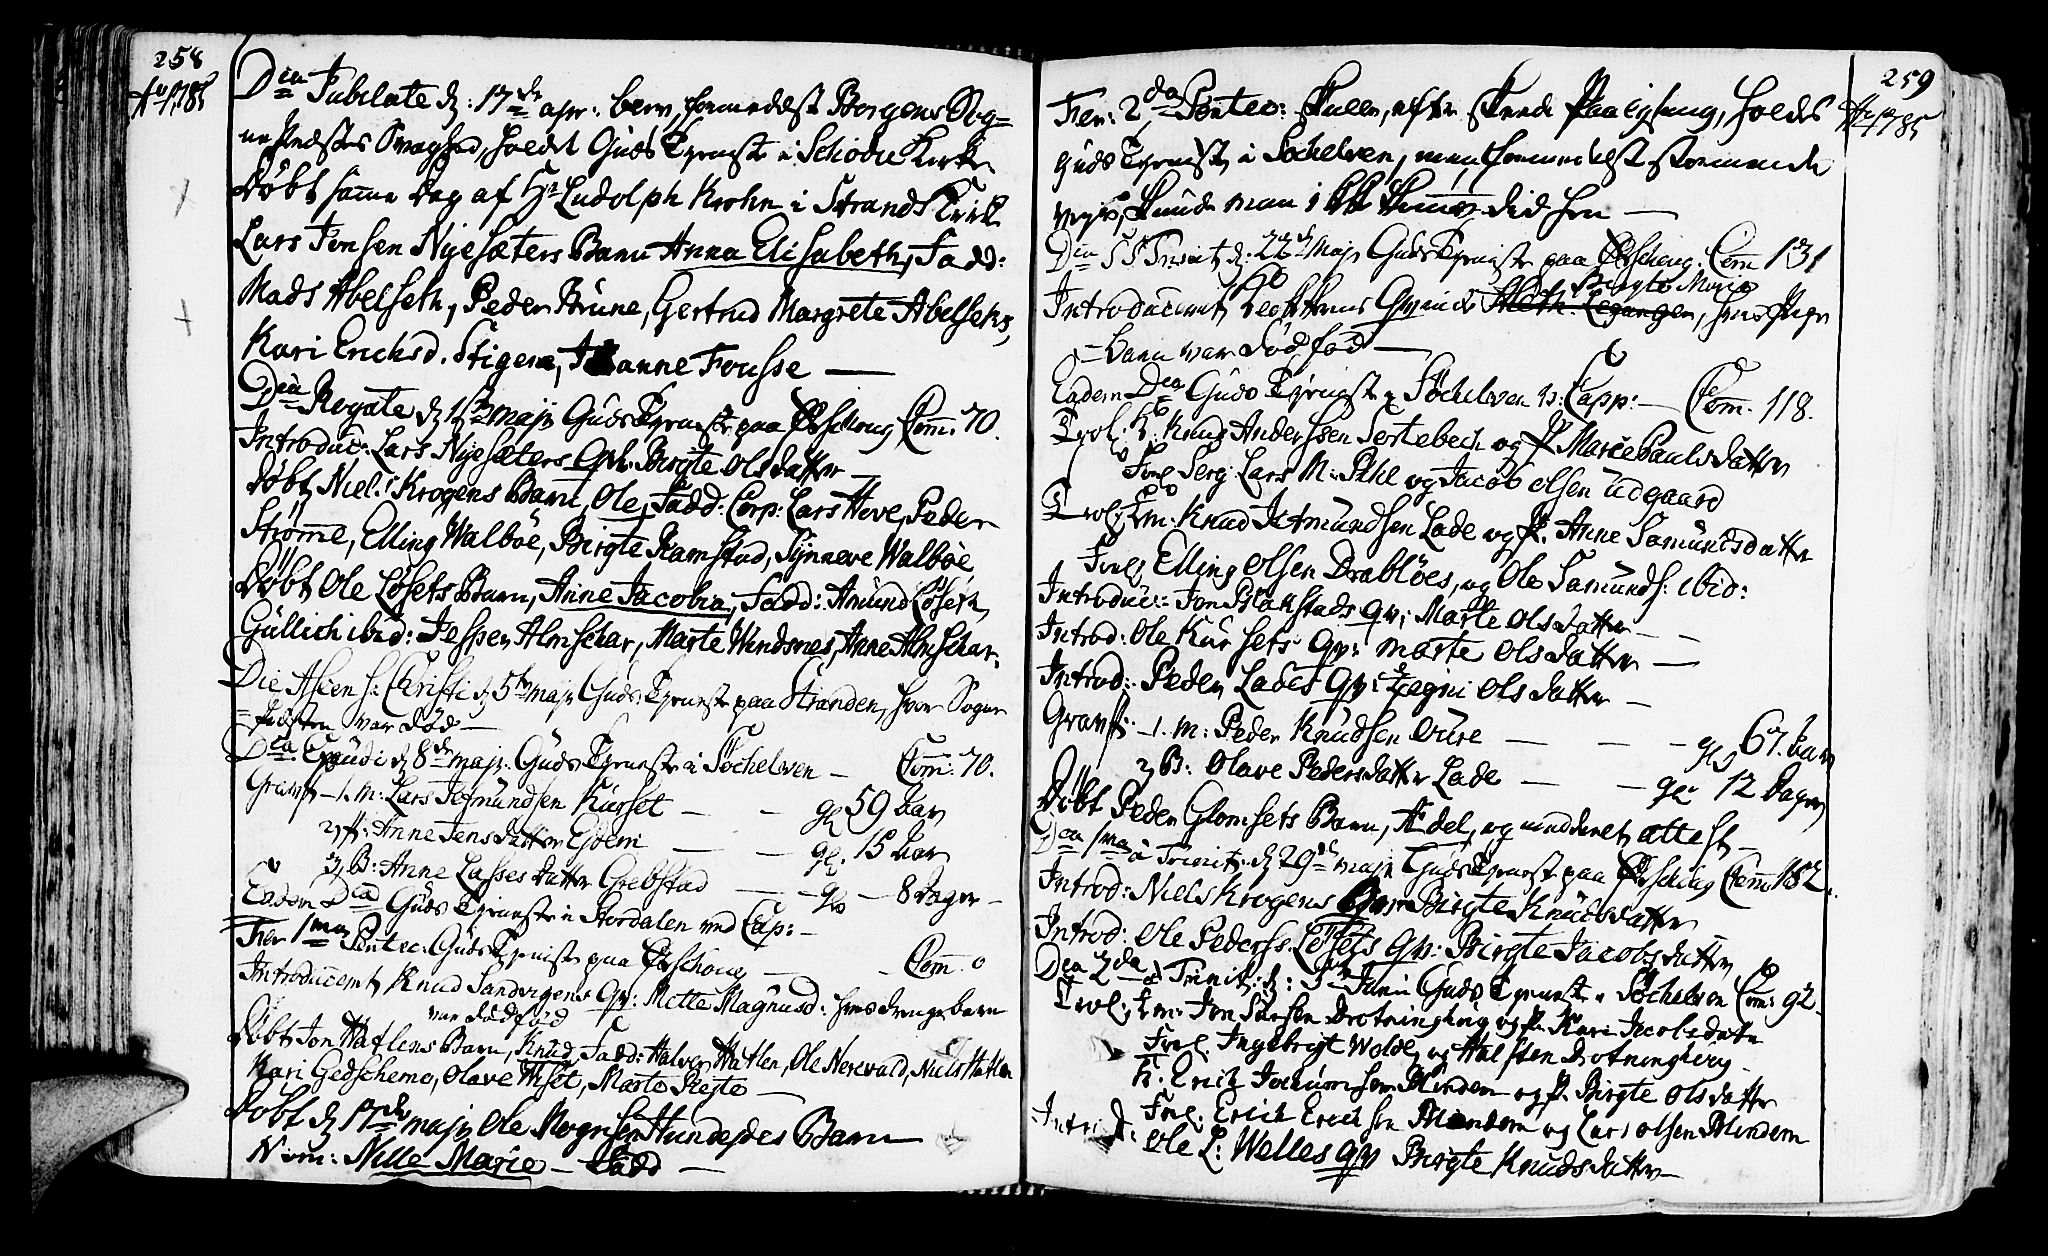 258
Ao 1785
Dca Jubilate d: 17de apr: blev, formedelst Borgens Sog=
nepræstes Svaghed, holdt Guds Tjeneste i Schodie Kirke
Døbt samme Dag af Hr Ludolph Krohn i Strands Kirke
Lars Jonsen Nyesæters Barn Anna Elisabeth, Fadd:
Mads Abelseth, Peder Brune, Gertrud Margrete Abelseth,
Kari Ericksd. Stigen, Johanne Fousse —
Dca Rogate d 1ste maji Guds Tjeneste paa Ørschoug Com: 70.
Introduc: Lars Nyesæters Qv: Birgte Olsdatter —
Døbt Niels Krogens Barn, Ole, Fadd: Corp: Lars Hove, Peder
Strømme, Elling Walbøe, Birgte Ramstad, Synneve Walbøe
Døbt Ole Løsets Barn, Anne Jacobia, Fadd: Amund Løseth,
Gullich ibid: Jesper Almschar, Marte Windsnes, Anne Almschar.
Die Ascens: Christi d 5te maji Guds Tjeneste paa Stranden, hvor Sogne
=præsten var død —
Dca Exaudi d 8de maji. Guds Tjeneste i Søchelven — Com: 70.
Gravf: — 1. M: Lars Jetmundsen Kurset — — gl 59 Aar
2, K: Anne Jensdatter Giøem — — gl: 15 Aar
3, B: Anne Lassesdatter Grebstad — — gl — 8 Dager —
Eadem Dca Guds Tjeneste i Stordalen ved Cap: —
Fer 1ma Pentec: Guds Tjeneste paa Ørschoug — — Com: 0
Introducent, Knud Sandvigens Qv: Mette Magnusd: hvis drengebarn
var dødfød
Døbt Jon Hatlens Barn, Knud, Fadd: Halvor Hatlen, Ole Nerevald, Niels Hatlen
Kari Gedschemo, Olave Wiset, Marte Rejte —
Døbt d 17de maji Ole Mogensen Hundejdes Barn
Nom: Nille Marie — Fadd —
259
Ao 1785
Fer: 2da Pentec: skulle, efter skeede Paalysning, holdes
Guds Tjeneste i Søchelven, men formedelst stormende
vejr, kunde man ikke komme did hen —
Dca SS Trinit. d: 22de Maji Guds Tjeneste paa Ørschoug. Com 131
Birgte Maria
Introducent, Qvinde, hvis Pige
=barn var dødfød —
Eadem Dca Guds Tjeneste i Søchelven v: Capp: — Com: 118.
Trol: K: Knud Anderssen Sortebech og P. Marie Paulsdatter
Forl Serg: Lars M: Pihl og Jacob Olsen Udgaard
Trol: Em: Knud Jetmundsen Lade og P. Anne Samundsdatter
Forl Elling Olsen Drabløes, og Ole Samunds: ibid:
Introduc: Jon Blakstads Qv: Marte Olsdatter —
Introd: Ole Kursets Qv: Marte Olsdatter —
Introd: Peder Lades Qv: Lagni Olsdatter —
Gravf: — 1. M: Peder Knudsen Oure — — — gl 67. Aar
2, B: Olave Pedersdatter Lade — — gl 12 Dager
Døbt Peder Glomsets Barn, Adel, og meddeelt attest —
Dca 1ma à Trinit: d 29de maji Guds Tjeneste paa Ørschoug Com 182.
Introd: Niels Krogens Qv: Birgte Knudsdatter
Introd: Ole Peders: Løsets Qv: Birgte Jacobsdatter
Dca 2da à Trinit: d: 5te Junii Guds Tjeneste i Søchelven Com: 92.
Trol: Em: Jon Larsen Drotninghoug og P. Kari Jacobsdatter
Forl. Ingebrigt Wolde, og Halsten Drotninghoug —
K. Erich Jochumsen Mindem og P. Birgte Olsdatter
Forl. Erich Erichsen Mindem og Lars Olsen Mindem
Introd: Ole L: Welles Qv Birgte Knudsdatter —